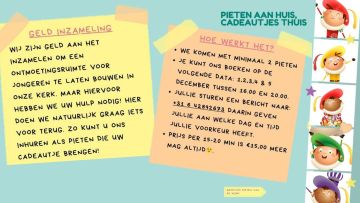 PIETEN AAN HUIS,
CADEAUTJES THUIS
GELD INZAMELING
WIJ ZIJN GELD AAN HET
INZAMELEN OM EEN
ONTMOETINGSRUIMTE VOOR
JONGEREN TE LATEN BOUWEN IN
ONZE KERK. MAAR HIERVOOR
HEBBEN WE UW HULP NODIG! HIER
DOEN WE NATUURLIJK GRAAG IETS
VOOR TERUG. ZO KUNT U ONS
INHUREN ALS PIETEN DIE UW
CADEAUTJE BRENGEN!
HOE WERKT HET?
• WE KOMEN MET MINIMAAL 2 PIETEN
• JE KUNT ONS BOEKEN OP DE
VOLGENDE DATA: 1,2,3,4 & 5
DECEMBER TUSSEN 16.00 EN 20.00.
• JULLIE STUREN EEN BERICHT NAAR:
+31 6 42842673 DAARIN GEVEN
JULLIE AAN WELKE DAG EN TIJD
JULLIE VOORKEUR HEEFT.
• PRIJS PER 15-20 MIN IS €15,00 MEER
MAG ALTIJD